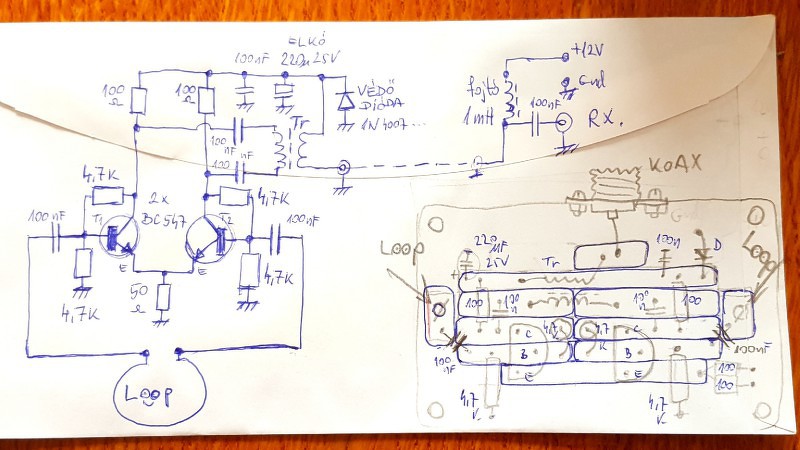 ELKÓ
100nF 220µ 25V
100 Ω
100 Ω
VÉDŐ
DIÓDA
1N4007...
Tr
100 nF
100 nF
4,7K
2x
BC547
4,7K
100nF
T1
T2
100nF
E
E
4,7K
50 Ω
4,7K
Loop
+12V
Gnd
fojtó
1mH
100nF
RX.
KOAX
G
LOOP
Loop
220 µF 25V
+
Tr
100n
D
100
100 n
100 n
100
C
4,7
4,7 K
C
B
B
E
E
100 nF
100nF
4,7
4,7
100
100